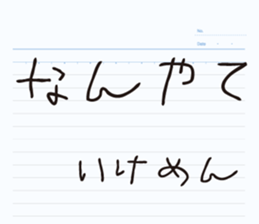 No.
Date
なんやて
いけめん